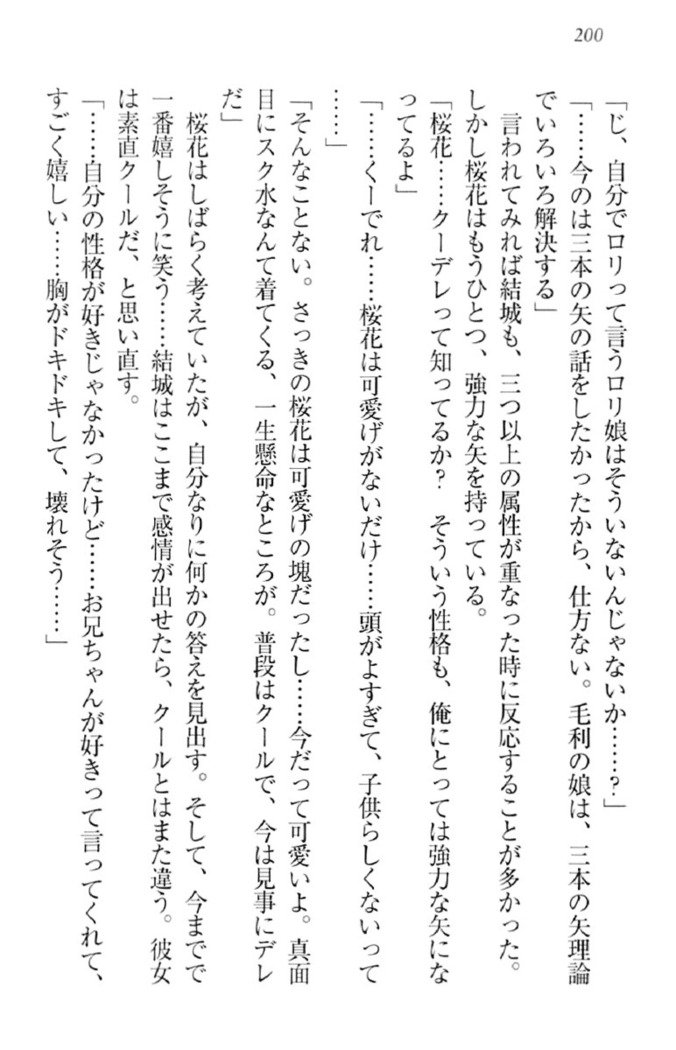 200
「じ、自分でロリって言うロリ娘はそういないんじゃないか……？」
「……今のは三本の矢の話をしたかったから、仕方ない。毛利の娘は、三本の矢理論
でいろいろ解決する」
　言われてみれば結城も、三つ以上の属性が重なった時に反応することが多かった。
しかし桜花はもうひとつ、強力な矢を持っている。
「桜花……クーデレって知ってるか？　そういう性格も、俺にとっては強力な矢にな
ってるよ」
「……くーでれ……桜花は可愛げがないだけ……頭がよすぎて、子供らしくないって
……」
「そんなことない。さっきの桜花は可愛げの塊だったし……今だって可愛いよ。真面
目にスク水なんて着てくる、一生懸命なところが。普段はクールで、今は見事にデレ
だ」
　桜花はしばらく考えていたが、自分なりに何かの答えを見出す。そして、今までで
一番嬉しそうに笑う……結城はここまで感情が出せたら、クールとはまた違う。彼女
は素直クールだ、と思い直す。
「……自分の性格が好きじゃなかったけど……お兄ちゃんが好きって言ってくれて、
すごく嬉しい……胸がドキドキして、壊れそう……」